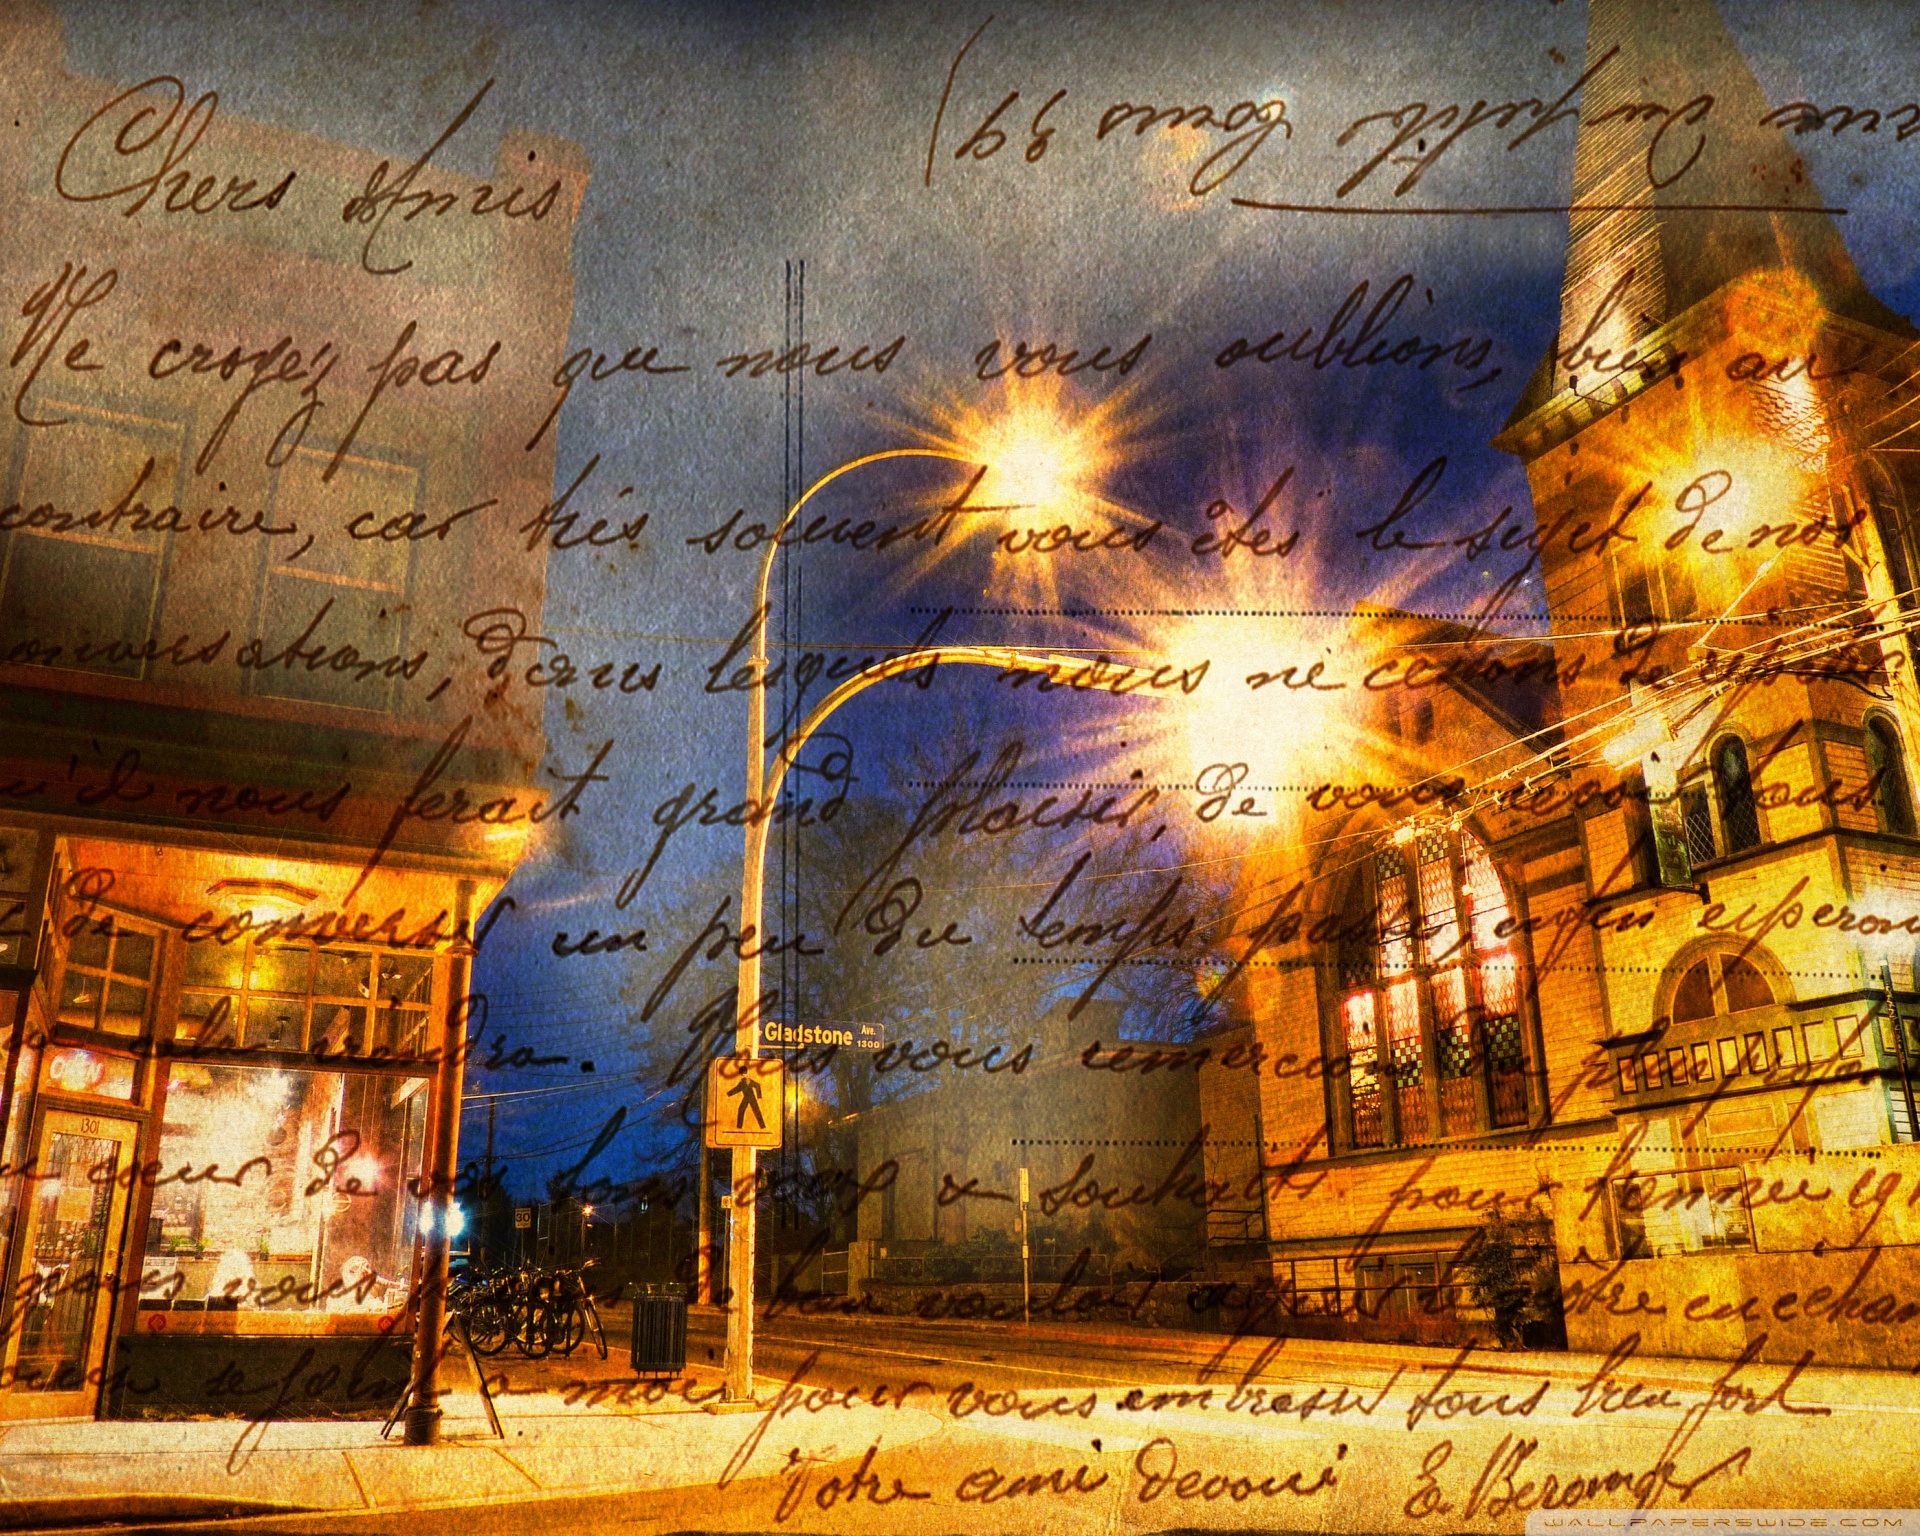 Chers Amis
rue du petit Tours 39)
Ne croyez pas que nous vous oublions, bien au
contraire, car très souvent vous êtes le sujet de nos
conversations, dans lesquels nous ne cessons de
qu'il nous ferait grand plaisir, de vous revoir tous
de converser un peu du temps passé, enfin espérons
cela viendra. Nous vous remercions du plus
du cœur de vos bons vœux & souhaits pour l'année
vous de bien vouloir agréer le nôtre en échan
se joint à moi pour vous embrasser tous bien fort
Votre ami dévoué E. Beranger
Gladstone Ave.
1300
OPEN
1301
30
WALLPAPERSWIDE.COM